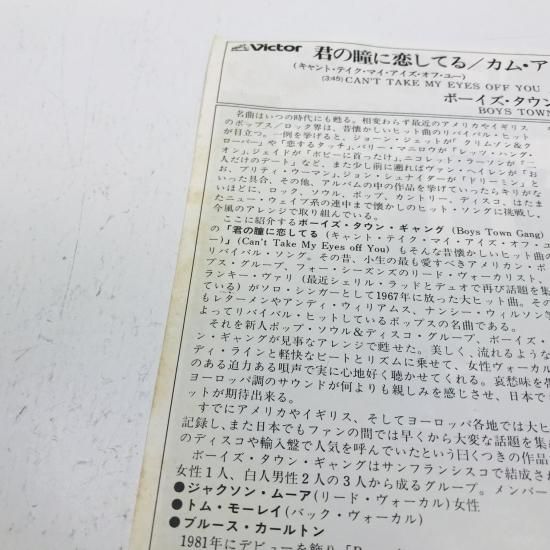 Victor 君の瞳に恋してる/カム・ア
(キャント・テイク・マイ・アイズ・オフ・ユー)
(3:45) CAN'T TAKE MY EYES OFF YOU
ボーイズ・タウン
BOYS TOWN
名曲はいつの時代にも甦る。相変わらず最近のアメリカやイギリス
のポップス/ロック界は、昔懐かしいヒット曲のリバイバル・ヒット
が目立つ。一例を挙げると、ジョーン・ジェットが「クリムソン&ク
ローバー」や「恋するタッチ」、バリー・マニロウが「レッツ・ハング・
オン」、ジェイドが「ボビーに首ったけ」、ニコレット・ラーソンが「二
人だけのデート」など、また少し前に溯ればヴァン・ヘイレンが「お
お、プリティ・ウーマン」、ジョン・シュナイダーが「ドリーミン」と
いった具合、その他、アルバムの中の作品を挙げていったらキリがな
いほどに、ロック、ソウル、ポップ、カントリー、ディスコ、はたま
たニュー・ウェイブ系の連中まで懐かしのヒット・ソングに挑戦し、
今風のアレンジで取り組んでいる。
ここに紹介するボーイズ・タウン・ギャング (Boys Town Gang)
の「君の瞳に恋してる (キャント・テイク・マイ・アイズ・オフ・ユ
ー)」(Can't Take My Eyes off You) もそんな昔懐かしいヒット曲の
リバイバル・ソング。その昔、小生の最も愛すべきアメリカン・ポ
ップス・グループ、フォー・シーズンズのリード・ヴォーカリスト、
ランキー・ヴァリ (最近シェリル・ラッドとデュオで再び話題を集
ている) がソロ・シンガーとして1967年に放った大ヒット曲。その
もレターメンやアンディ・ウィリアムス、ナンシー・ウィルソン等
よってリバイバル・ヒットしているポップスの名曲である。
それを新人ポップ・ソウル&ディスコ・グループ、ボーイズ・
ン・ギャングが見事なアレンジで甦せた。美しく、流れるような
ディ・ラインと軽快なビートとリズムに乗せて、女性ヴォーカル
のある迫力ある唄声で実に心地好く聴かせてくれる。哀愁味を帯
ヨーロッパ調のサウンドが何よりも親しみを感じさせ、日本で
ットが期待出来る。
すでにアメリカやイギリス、そしてヨーロッパ各地では大ヒ
記録し、また日本でもファンの間では早くから大変な話題を集
のディスコや輸入盤で人気を呼んでいたという曰くつきの作品
ボーイズ・タウン・ギャングはサンフランシスコで結成され
女性1人、白人男性2人の3人から成るグループ。メンバー
●ジャクソン・ムーア(リード・ヴォーカル)女性
●トム・モーレイ(バック・ヴォーカル)
●ブルース・カールトン
1981年にデビューを飾り